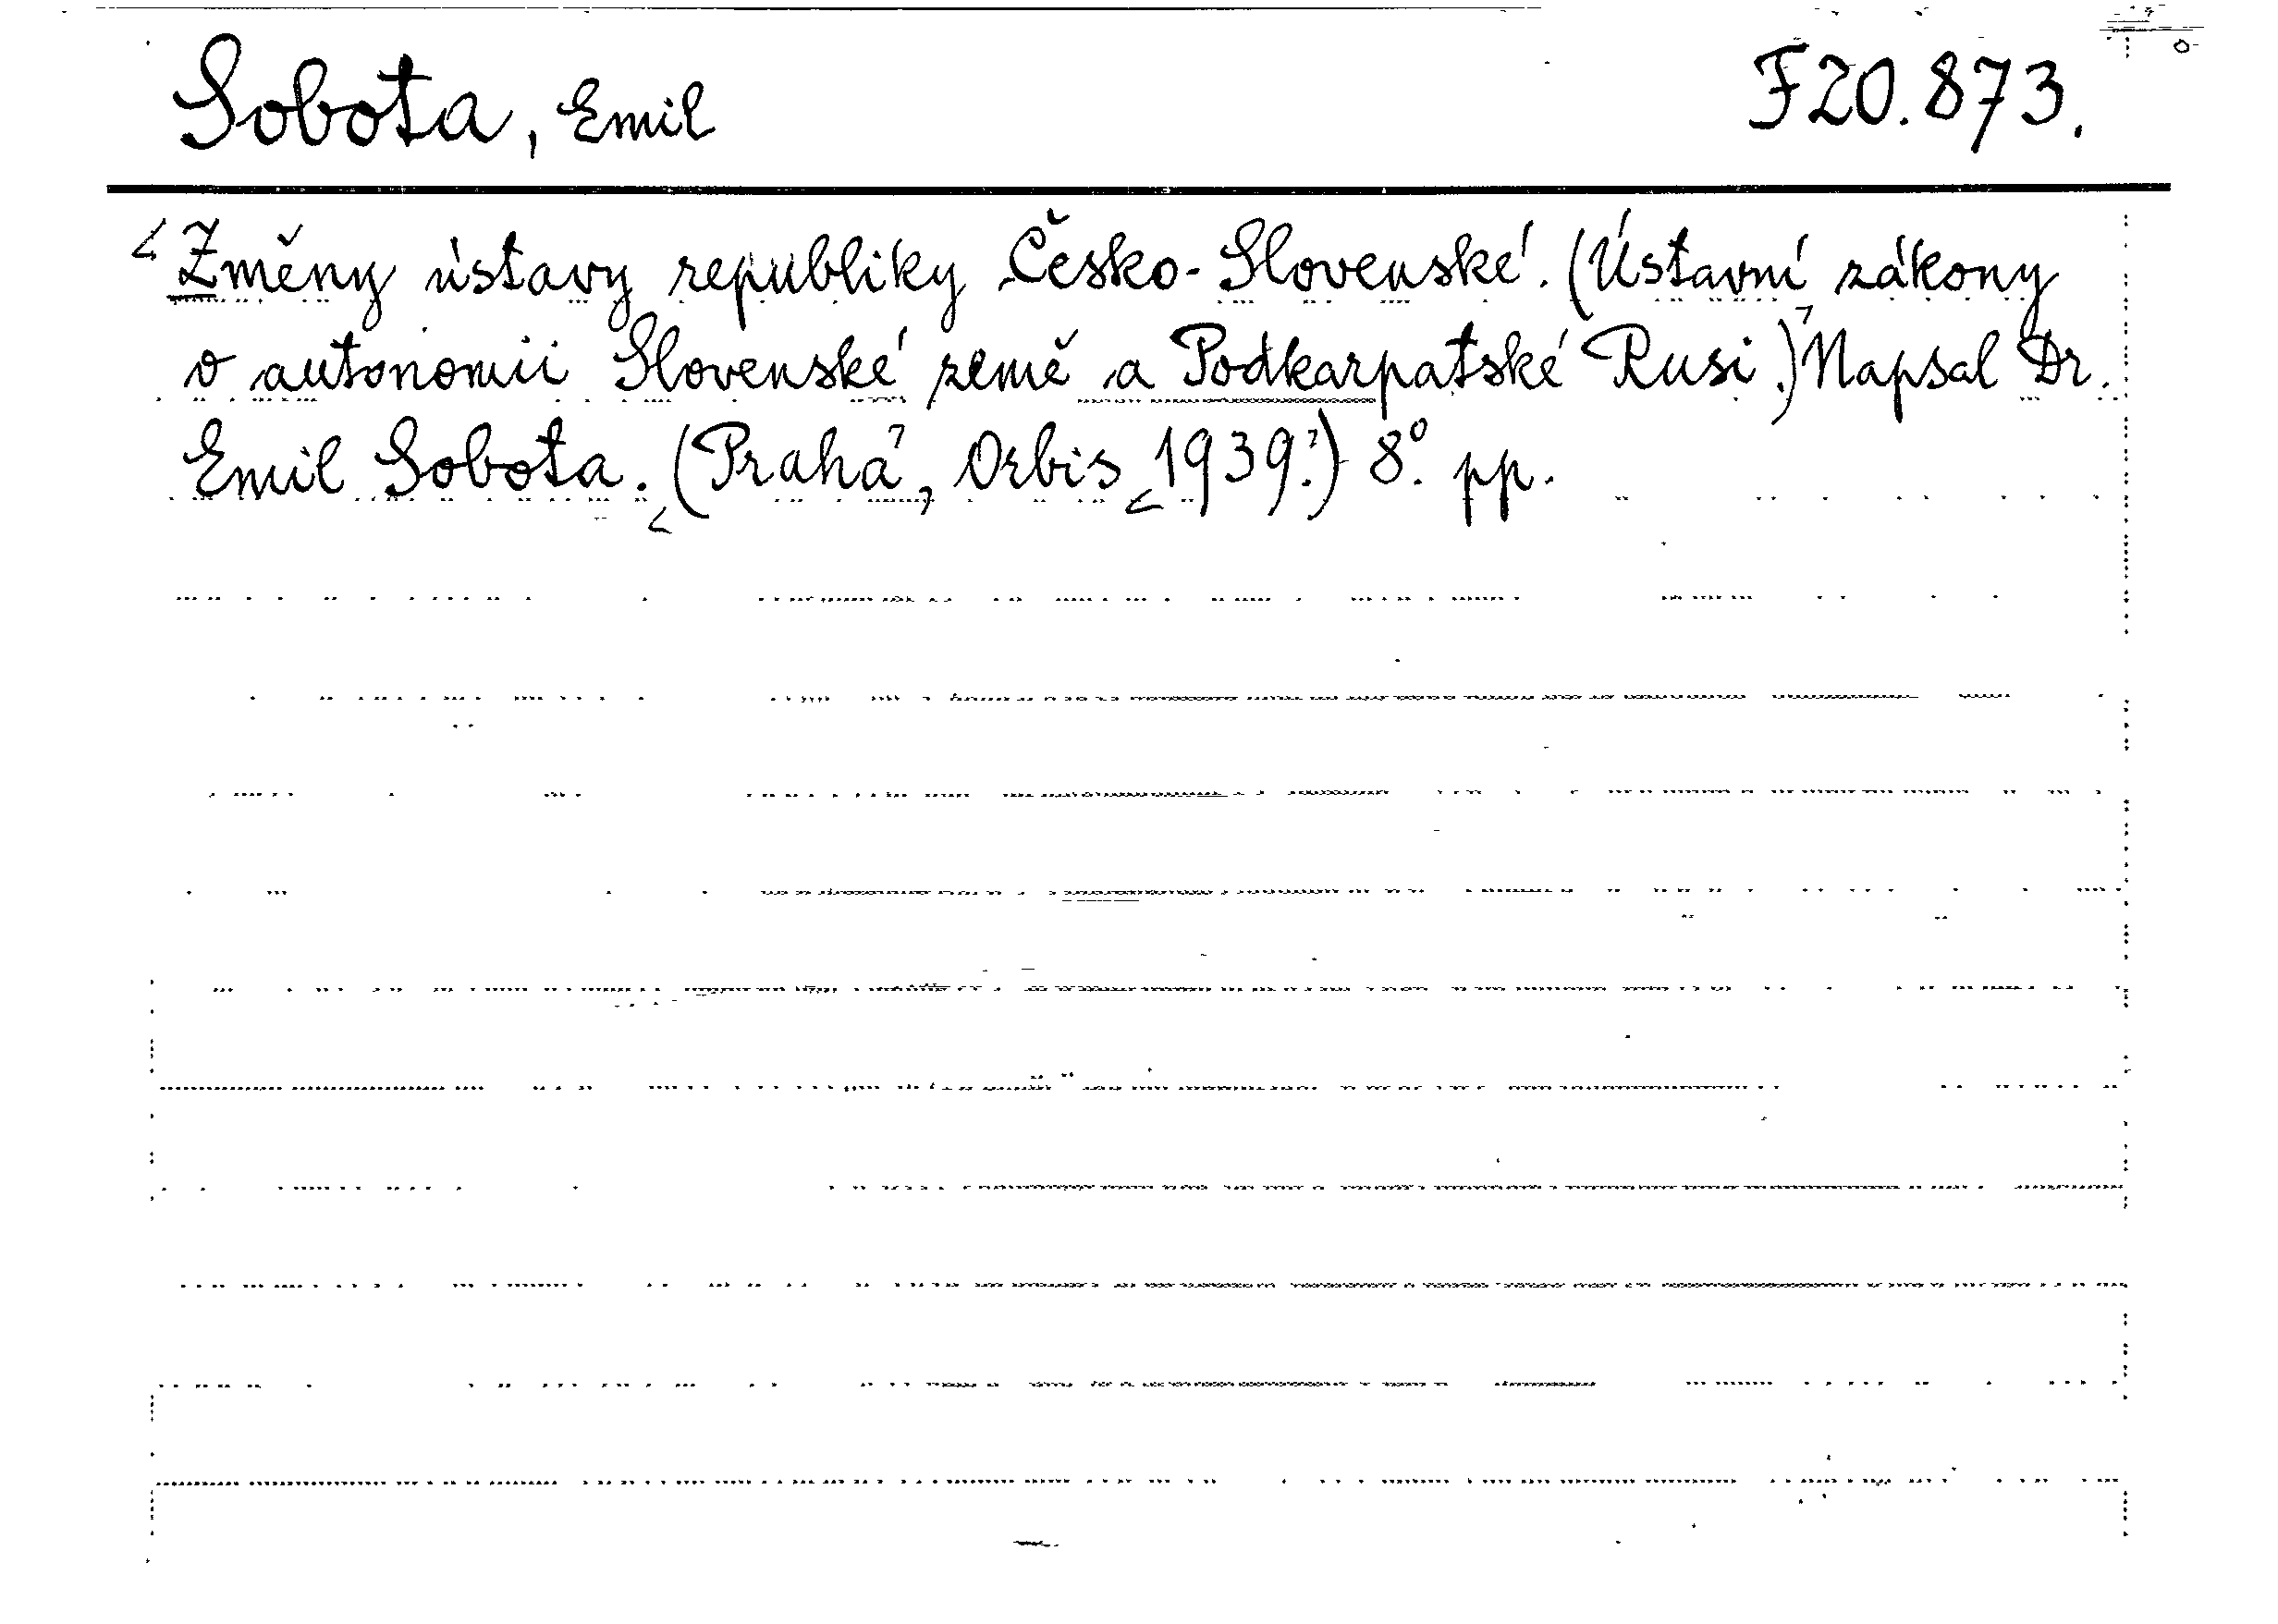 Sobota, Emil
F20.873.
Změny ústavy republiky Česko-Slovenské. (Ústavní zákony
o autonomii Slovenské země a Podkarpatské Rusi.) Napsal Dr.
Emil Sobota. (Praha, Orbis 1939.) 8°. pp.